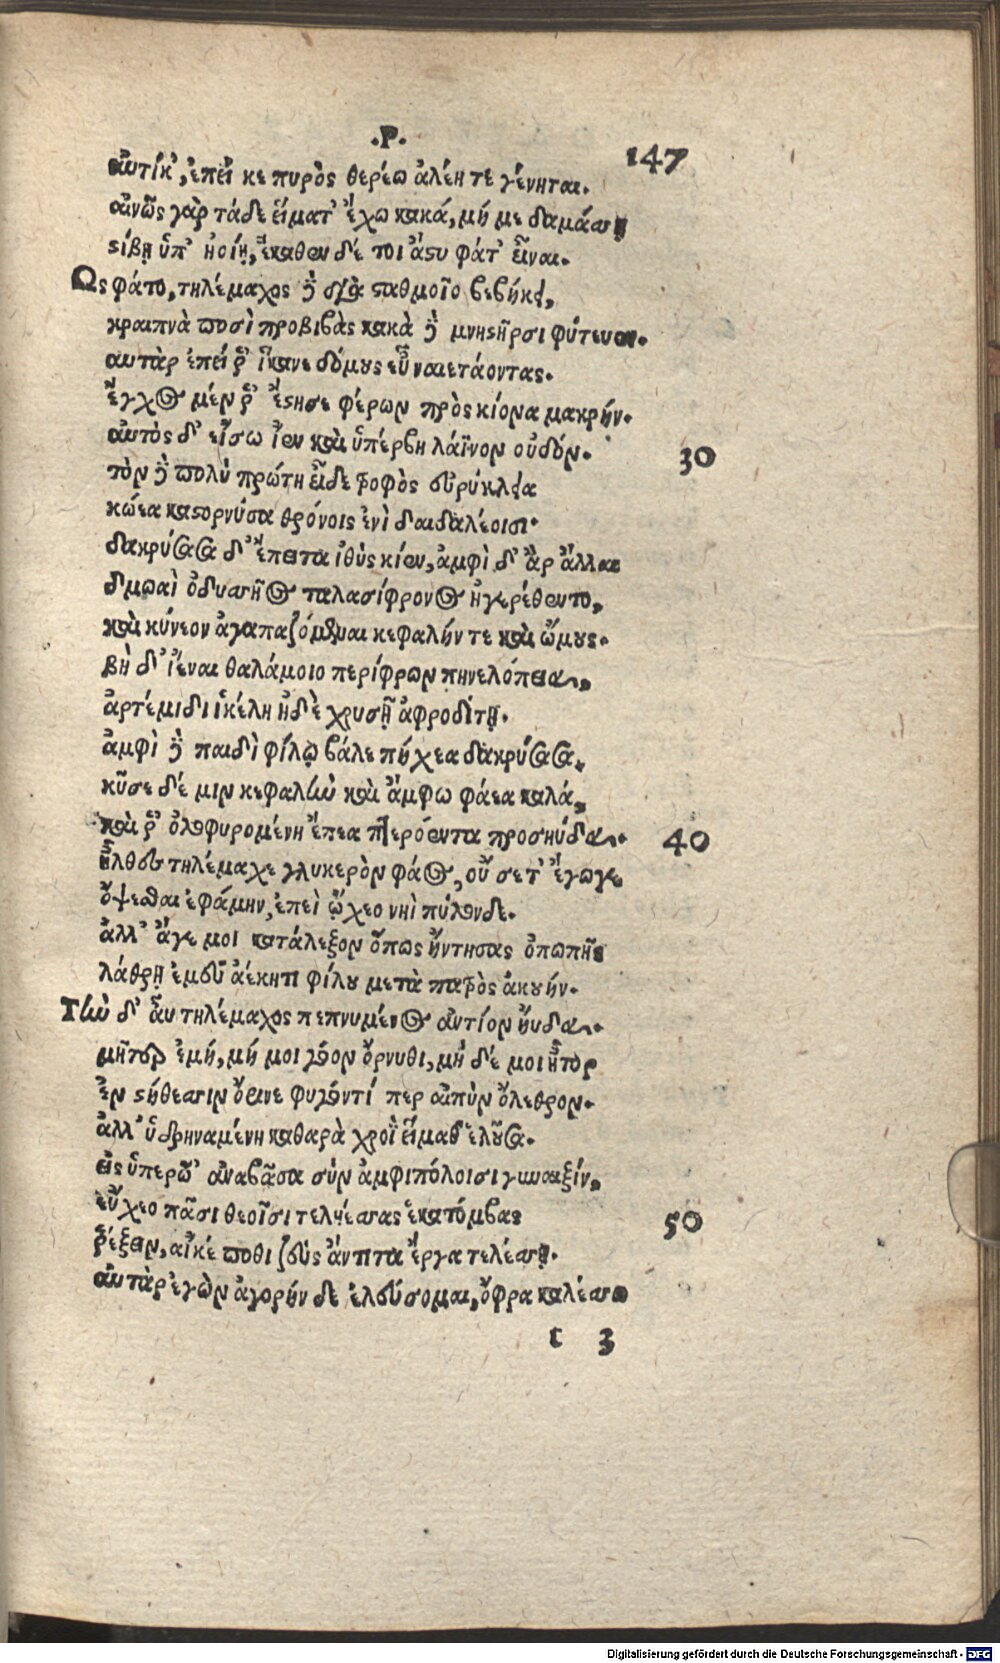 .Ρ.
147
αὐτίκ', ἐπεί κε πυρὸς θερέω ἀλέη τε γένηται.
αἰνῶς γὰρ τάδε εἵματ' ἔχω κακά, μή με δαμάσῃ
στίβη ὑπ' ἠοίη, ἕκαθεν δέ τοι ἄστυ φάτ' εἶναι.
Ως φάτο, τηλέμαχος δὲ διὰ σταθμοῖο βεβήκει,
κραιπνὰ ποσὶ προβιβὰς κακὰ δὲ μνηστῆρσι φύτευεν.
αυτὰρ ἐπεί ῥ' ἵκανε δόμους εὖ ναιετάοντας.
ἔγχος μέν ῥ' ἔστησε φέρων πρὸς κίονα μακρήν.
αυτὸς δ' εἴσω ἴεν καὶ ὑπέρβη λάϊνον οὐδόν.
30
τὸν δὲ πολὺ πρώτη εἶδε τροφὸς εὐρύκλεια
κώεα καστορνύσα θρόνοις ἐνὶ δαιδαλέοισι.
δακρύσασα δ' ἔπειτα ἰθὺς κίεν, ἀμφὶ δ' ἂρ ἄλλαι
δμωαὶ ὀδυσσῆος ταλασίφρονος ἠγερέθεντο,
καὶ κύνεον ἀγαπαζόμεναι κεφαλήν τε καὶ ὤμους.
βὴ δ' ἴεναι θαλάμοιο περίφρων πηνελόπεια,
ἀρτέμιδι ἰκέλη ἠδὲ χρυσῇ ἀφροδίτῃ.
ἀμφὶ δὲ παιδὶ φίλῳ βάλε πήχεα δακρύσασα,
κῦσε δέ μιν κεφαλὴν καὶ ἄμφω φάεα καλά,
καὶ ῥ' ὀλοφυρομένη ἔπεα πτερόεντα προσηύδα.
40
ἦλθες τηλέμαχε γλυκερὸν φάος, οὔ σετ' ἔγωγε
ὄψεσθαι ἐφάμην, ἐπεὶ ᾤχεο νηὶ πύλονδε.
ἀλλ' ἄγε μοι κατάλεξον ὅπως ἤντησας ὀπωπῆς
λάθρῃ ἐμεῦ ἀέκητι φίλου μετὰ πατρὸς ἀκουήν.
Τὴν δ' αὖ τηλέμαχος πεπνυμένος ἀντίον ηὔδα.
μῆτερ ἐμή, μή μοι γόον ὄρνυθι, μὴ δέ μοι ἦτορ
ἐν στήθεσσιν ὄρινε φυγόντί περ αἰπὺν ὄλεθρον.
ἀλλ' ὑδρηναμένη καθαρὰ χροῒ εἵμαθ' ἑλοῦσα.
εἰς ὑπερῷ' ἀναβᾶσα σὺν ἀμφιπόλοισι γυναιξίν,
εὔχεο πᾶσι θεοῖσι τεληέσσας ἑκατόμβας
50
ῥέξειν, αἴκέ ποθι ζεὺς ἄντιτα ἔργα τελέσσῃ.
αυτὰρ ἐγὼν ἀγορήν δε ἐλεύσομαι, ὄφρα καλέσσω
t 3
Digitalisierung gefördert durch die Deutsche Forschungsgemeinschaft - DFG